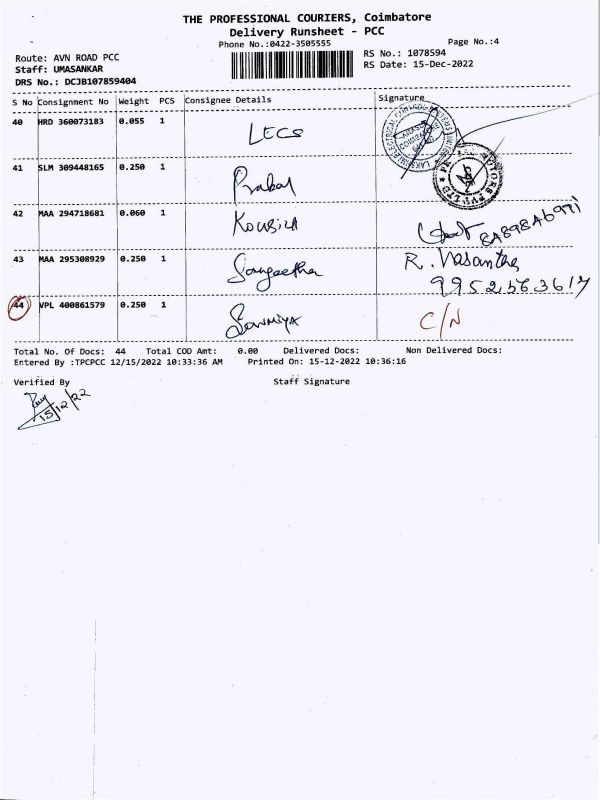 THE PROFESSIONAL COURIERS, Coimbatore
Delivery Runsheet - PCC
Phone No.:0422-3505555
Page No.:4
Route: AVN ROAD PCC
RS No.: 1078594
Staff: UMASANKAR
RS Date: 15-Dec-2022
DRS No.: DCJB107859404
S No Consignment No Weight PCS Consignee Details Signature
40 HRD 360073183 0.055 1 LECS
41 SLM 309448165 0.250 1
42 MAA 294718681 0.060 1
43 MAA 295308929 0.250 1 Sangeetha R. Vasantha
44 VPL 400861579 0.250 1 Sowmiya C/N
Total No. Of Docs: 44 Total COD Amt: 0.00 Delivered Docs: Non Delivered Docs:
Entered By :TPCPCC 12/15/2022 10:33:36 AM Printed On: 15-12-2022 10:36:16
Verified By Staff Signature
15/12/22